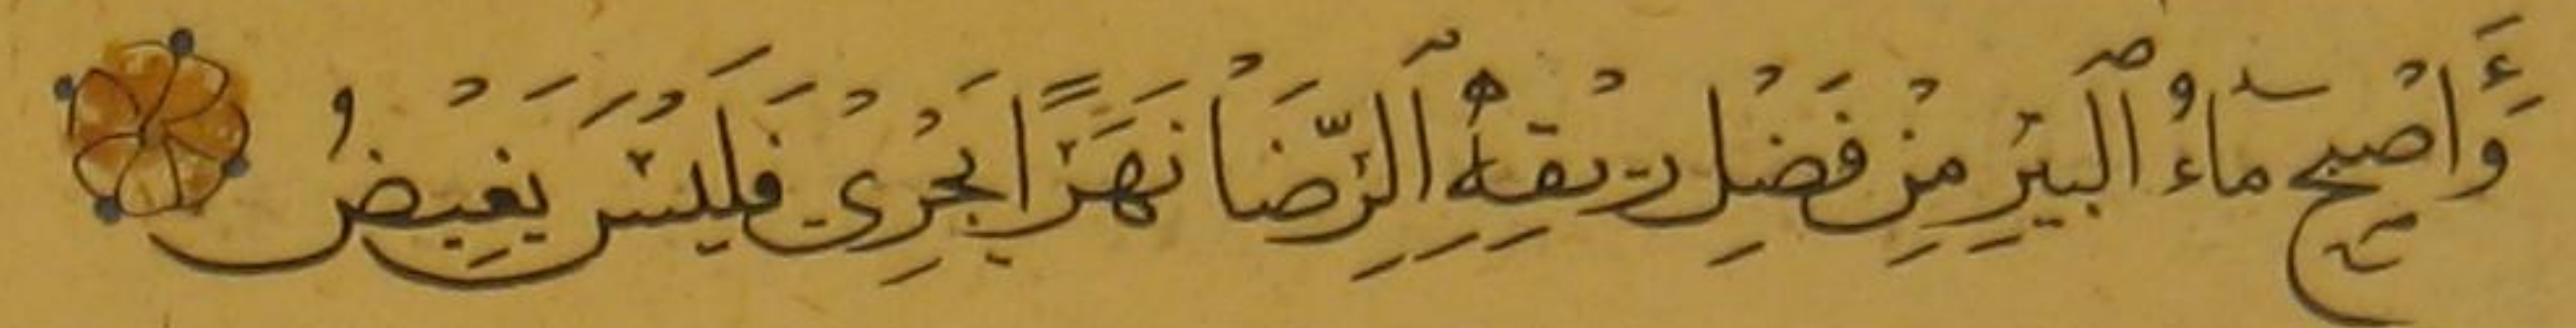 وَأَصْبَحَ مَاءُ الْبِيرِ مِنْ فَضْلِ رِيقِهِ الرِّضَا نَهَرًا يَجْرِي فَلَيْسَ يَغِيضُ